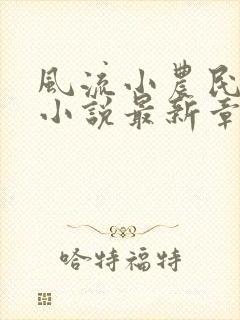 風流小農民
小說最新章
哈特福特